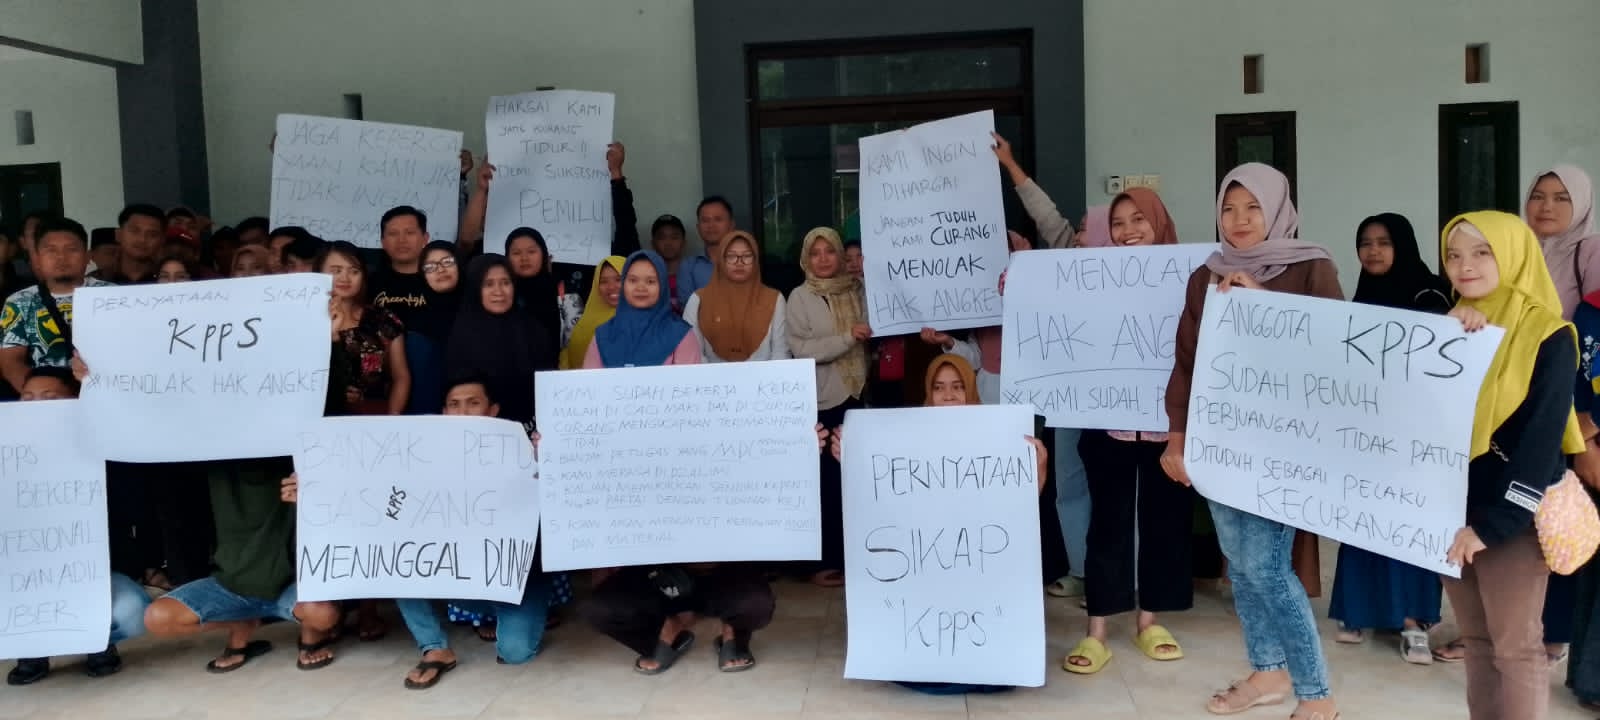 JAGA KEPERCA
YAAN KAMI JIKA
TIDAK INGIN
KEPERCAYAAN
HARGAI KAMI
YANG KURANG
TIDUR!!
DEMI SUKSESNYA
PEMILU
2024
KAMI INGIN
DIHARGAI
JANGAN TUDUH
KAMI CURANG!!
MENOLAK
HAK ANGKET
MENOLAK
HAK ANG
#KAMI_SUDAH_P
ANGGOTA KPPS
SUDAH PENUH
PERJUANGAN, TIDAK PATUT
DITUDUH SEBAGAI PELAKU
KECURANGAN!!
PERNYATAAN SIKAP
KPPS
#MENOLAK HAK ANGKET
PPS
BEKERJA
OFESIONAL
DAN ADIL
UBER
BANYAK PETU
GAS KPPS YANG
MENINGGAL DUNIA
KAMI SUDAH BEKERJA KERAS
MALAH DI CACI MAKI DAN DI CURIGAI
CURANG MENGUCAPKAN TERIMAKASIHPUN
TIDAK
2. BANYAK PETUGAS YANG MD
3. KAMI MERASA DI DZALIMI
4. KALIAN MEMIKIRKAN SENDIRI KEPENTI
NGAN PARTAI DENGAN TUDUHAN KEJI
5. KAMI AKAN MENUNTUT KERUGIAN
DAN MATERIAL
PERNYATAAN
SIKAP
"KPPS"
GREENAGA
FASHION